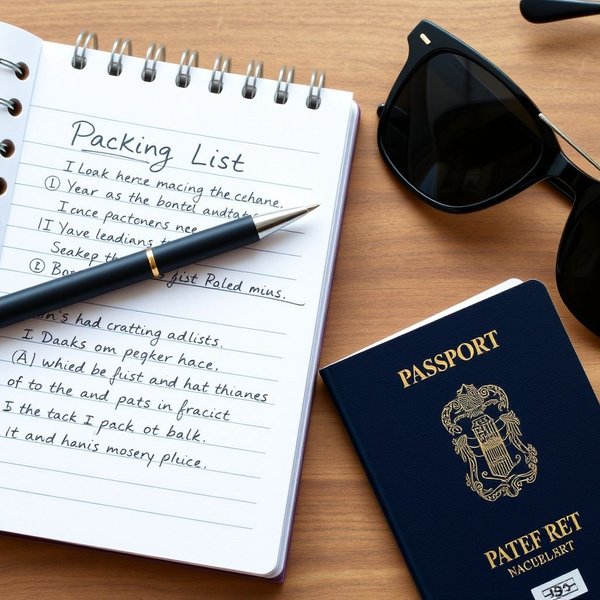 Packing List
I Loak herce macing the cchane.
① Year as the bontel andtabs
I once pactoners nee
II Yave leadians t
Seakep th gist Roled mius.
② Bo
n's had cratting adlists.
I Daaks om pegker hace,
(A) whied be fiist and hat thianes
of to the and pats in fracict
I the tack I pack ot balk.
It and hanis mosery pluice.
PASSPORT
PATEF RET
NACUBLART